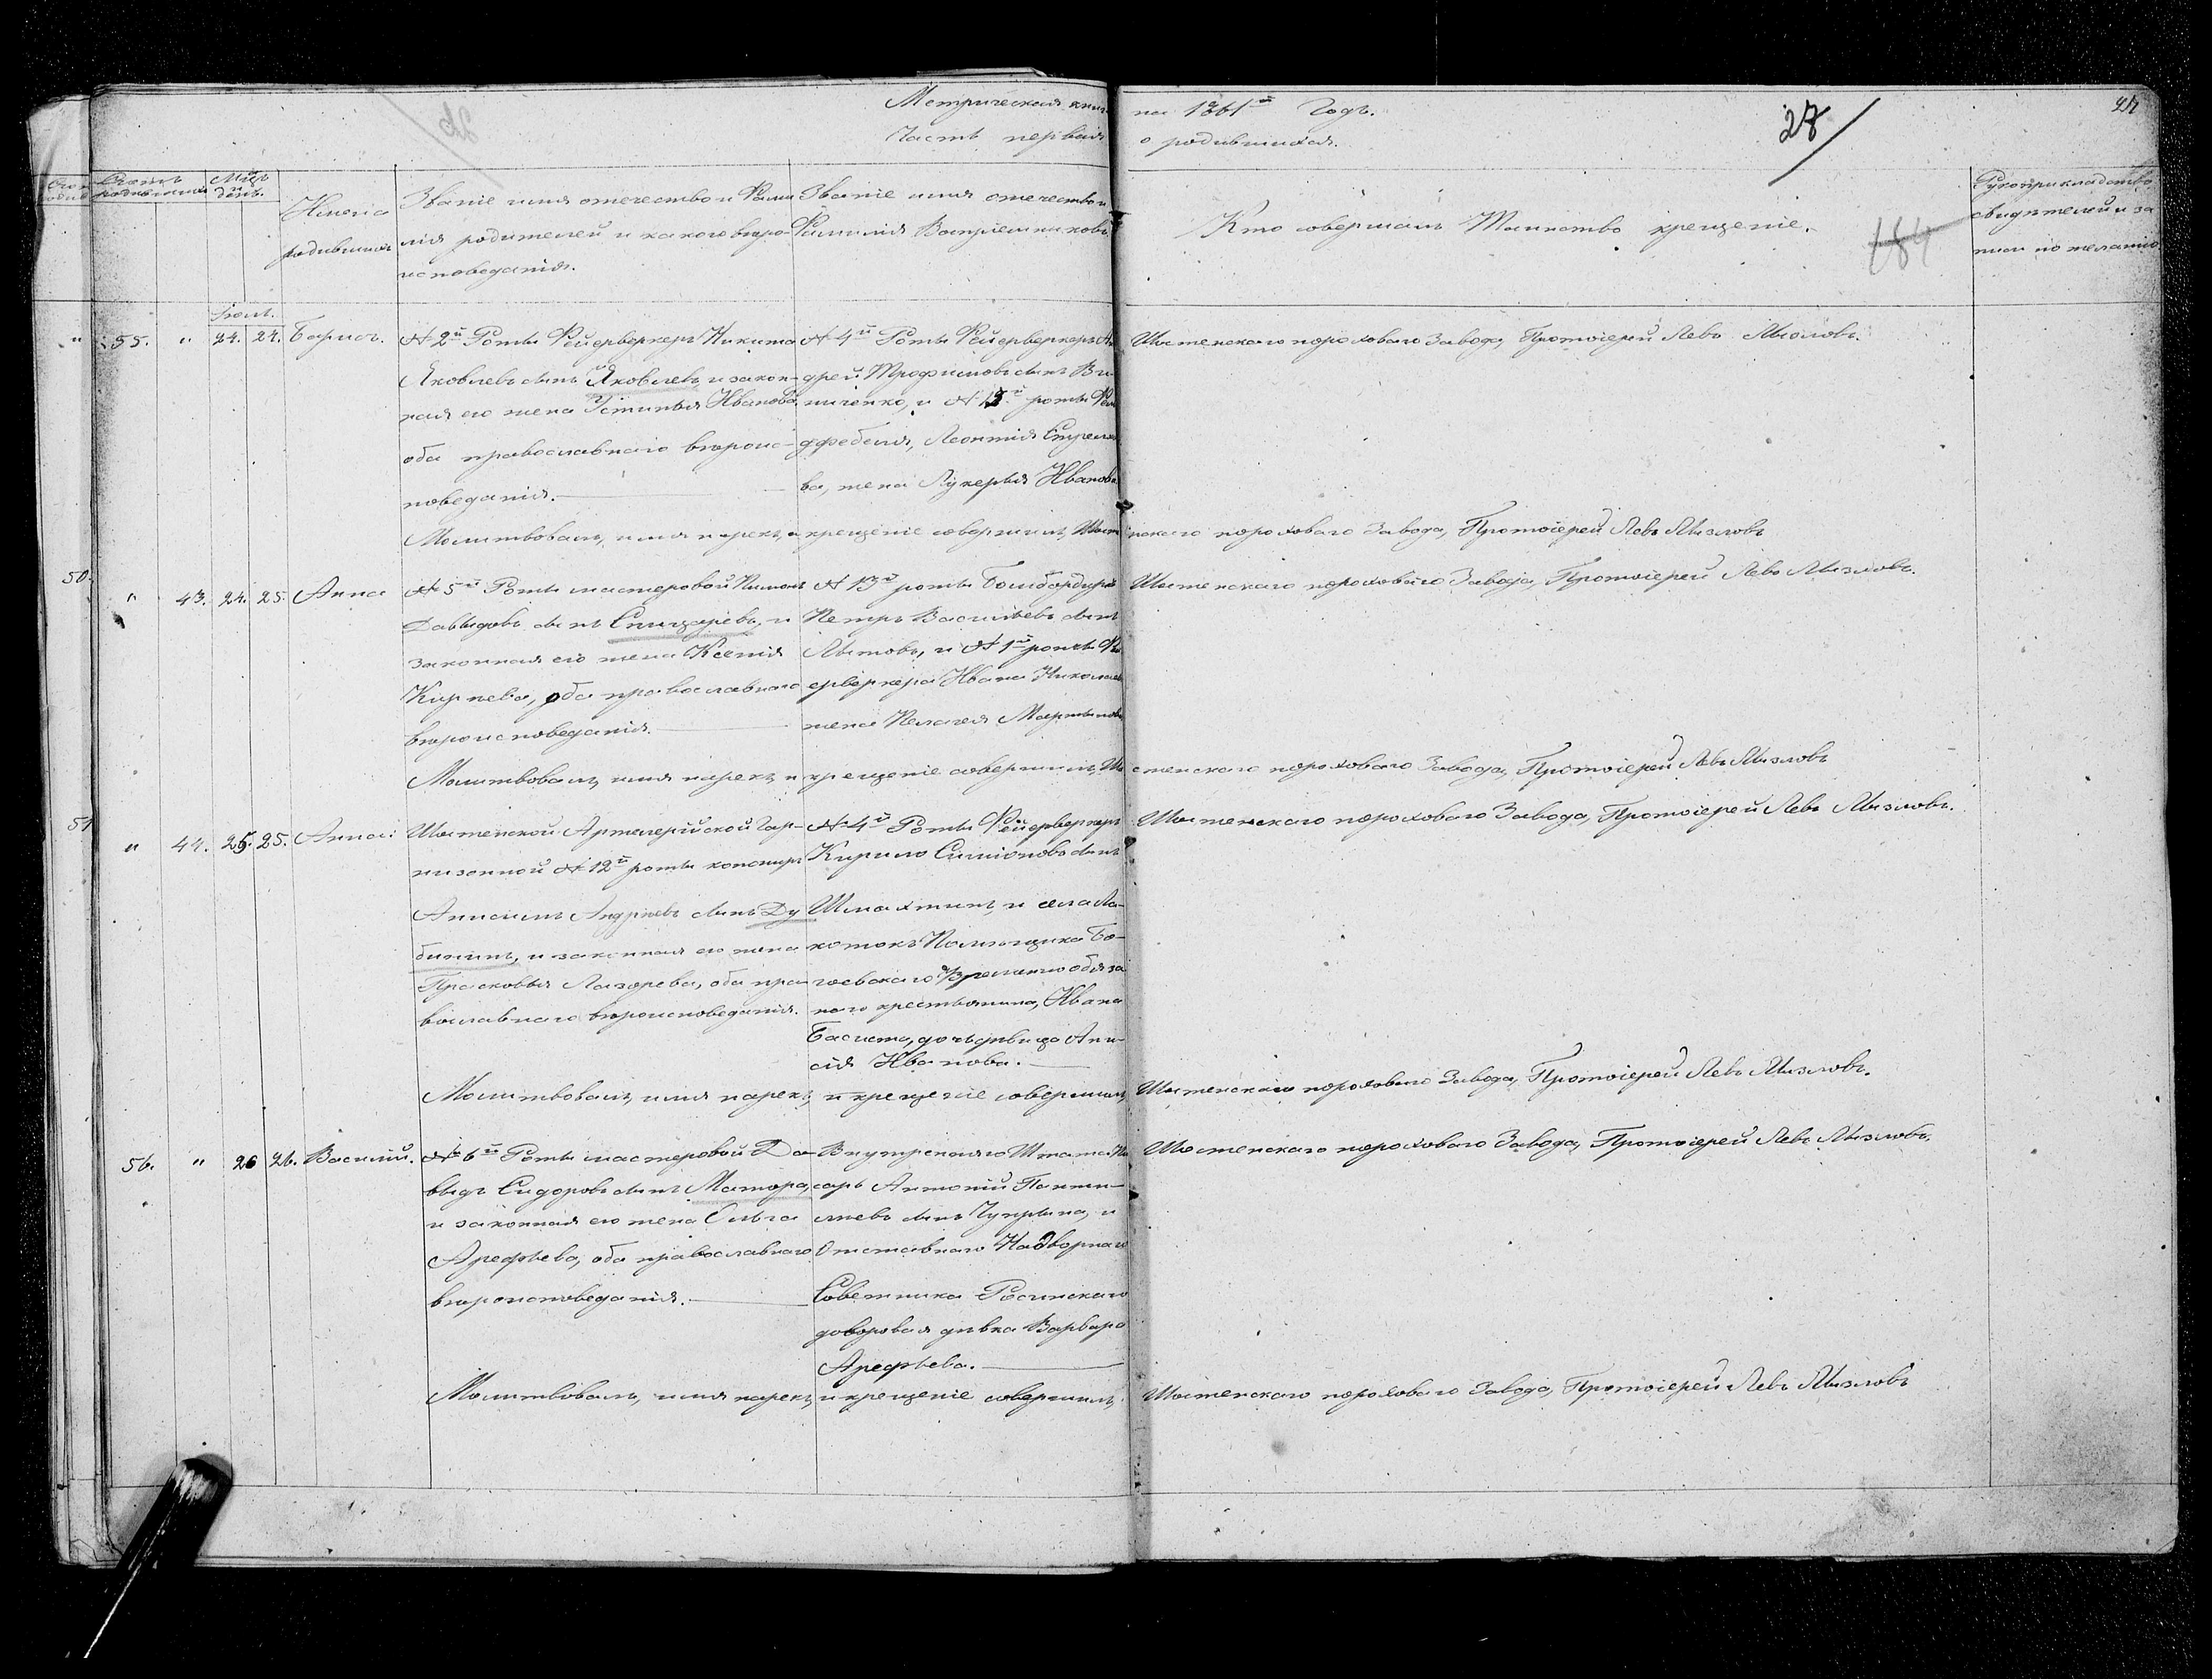 Метрическая книга на 1861й Годъ.
Часть первая о родившихся.
27
184
Счетъ родившихся
Мѣсяцъ и день.
Имена родившихся
Званіе имя отечество и Фами-
лія родителей и какого вѣро-
исповеданія.
Званіе имя отечество и
Фамилія Воспріемниковъ
Кто совершалъ Таинство крещеніе.
Рукоприкладство
свидѣтелей и за
писи по желанію
Іюль.
55. " 24. 24. Борисъ.
№ 2й Роты Фейерверкеръ Никита
Яковлевъ сынъ Яковлевъ, и закон-
ная его жена Устинья Иванова
оба православнаго вѣроис-
поведанія.
№ 4й Роты Фейерверкеръ Ан
дрей Трофимовъ сынъ Ви-
ниченко, и № 13й роты Фель
дфебеля, Леонтія Стрельцо
ва, жена Лукерья Иванова
Шостенскаго пороховаго Завода, Протоіерей Левъ Мызловъ.
Молитвовалъ, имя нарекъ, и крещеніе совершилъ, Шост
енскаго пороховаго Завода, Протоіерей Левъ Мызловъ
50.
" 43. 24. 25. Анна
№ 5й Роты мастеровой Пименъ
Давыдовъ сынъ Спицаревъ, и
законная его жена Ксенія
Кирпева, оба православнаго
вѣроисповеданія.
№ 13й роты Бомбардиръ
Петръ Васильевъ сынъ
Лытовъ, и № 1й роты Фе
ерверкера Ивана Николаев
жена Пелагея Мартынова
Шостенскаго пороховаго Завода, Протоіерей Левъ Мызловъ.
Молитвовалъ, имя нарекъ, и крещеніе совершилъ, Шо
стенскаго пороховаго Завода, Протоіерей Левъ Мызловъ
51
" 44. 25. 25. Анна.
Шостенской Артелерійской Гар-
низонной № 12й роты канониръ
Анисимъ Андрѣевъ сынъ Ду
бининъ, и законная его жена
Прасковья Лазорева, оба пра-
вославнаго вѣроисповеданія.
№ 4й Роты Фейерверкеръ
Кирило Симіоновъ сынъ
Шмахтинъ, и села Ло-
котокъ Помѣщика Бо-
гаевскаго Временно обяза
наго крестьянина, Ивана
Басиста, дочь дѣвица Ани-
сія Иванова.
Шостенскаго пороховаго Завода, Протоіерей Левъ Мызловъ.
Молитвовалъ, имя нарекъ, и крещеніе совершилъ,
Шостенскаго пороховаго Завода, Протоіерей Левъ Мызловъ.
56. " 26 26. Василій.
№ 6й Роты мастеровой Да-
выдъ Сидоровъ сынъ Матора,
и законная его жена Ольга
Арефьева, оба православнаго
вѣроисповеданія.
Внутренняго Штата Пи
сарь Антоній Панте-
лѣевъ сынъ Чупрына, и
Отставнаго Надворнаго
Советника Росинскаго
дворовая дѣвка Варвара
Арефьева.
Шостенскаго пороховаго Завода, Протоіерей Левъ Мызловъ.
Молитвовалъ, имя нарекъ, и крещеніе совершилъ,
Шостенскаго пороховаго Завода, Протоіерей Левъ Мызловъ